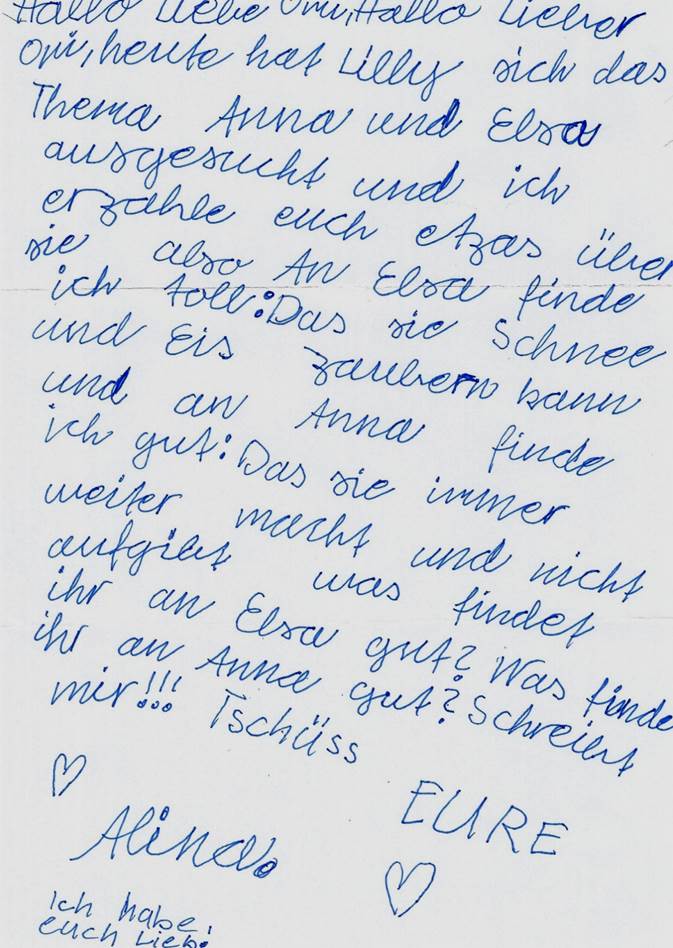 Hallo Liebe Omi, Hallo Lieber
Opi, heute hat Lilly sich das
Thema Anna und Elsa
ausgesucht und ich
erzähle euch etzas über
sie also An Elsa finde
ich toll: Das sie Schnee
und Eis zaubern kann
und an Anna finde
ich gut: Das sie immer
weiter macht und nicht
aufgibt was findet
ihr an Elsa gut? Was finde
ihr an Anna gut? Schreibt
mir!!! Tschüss
EURE
Alina
Ich habe
euch Lieb